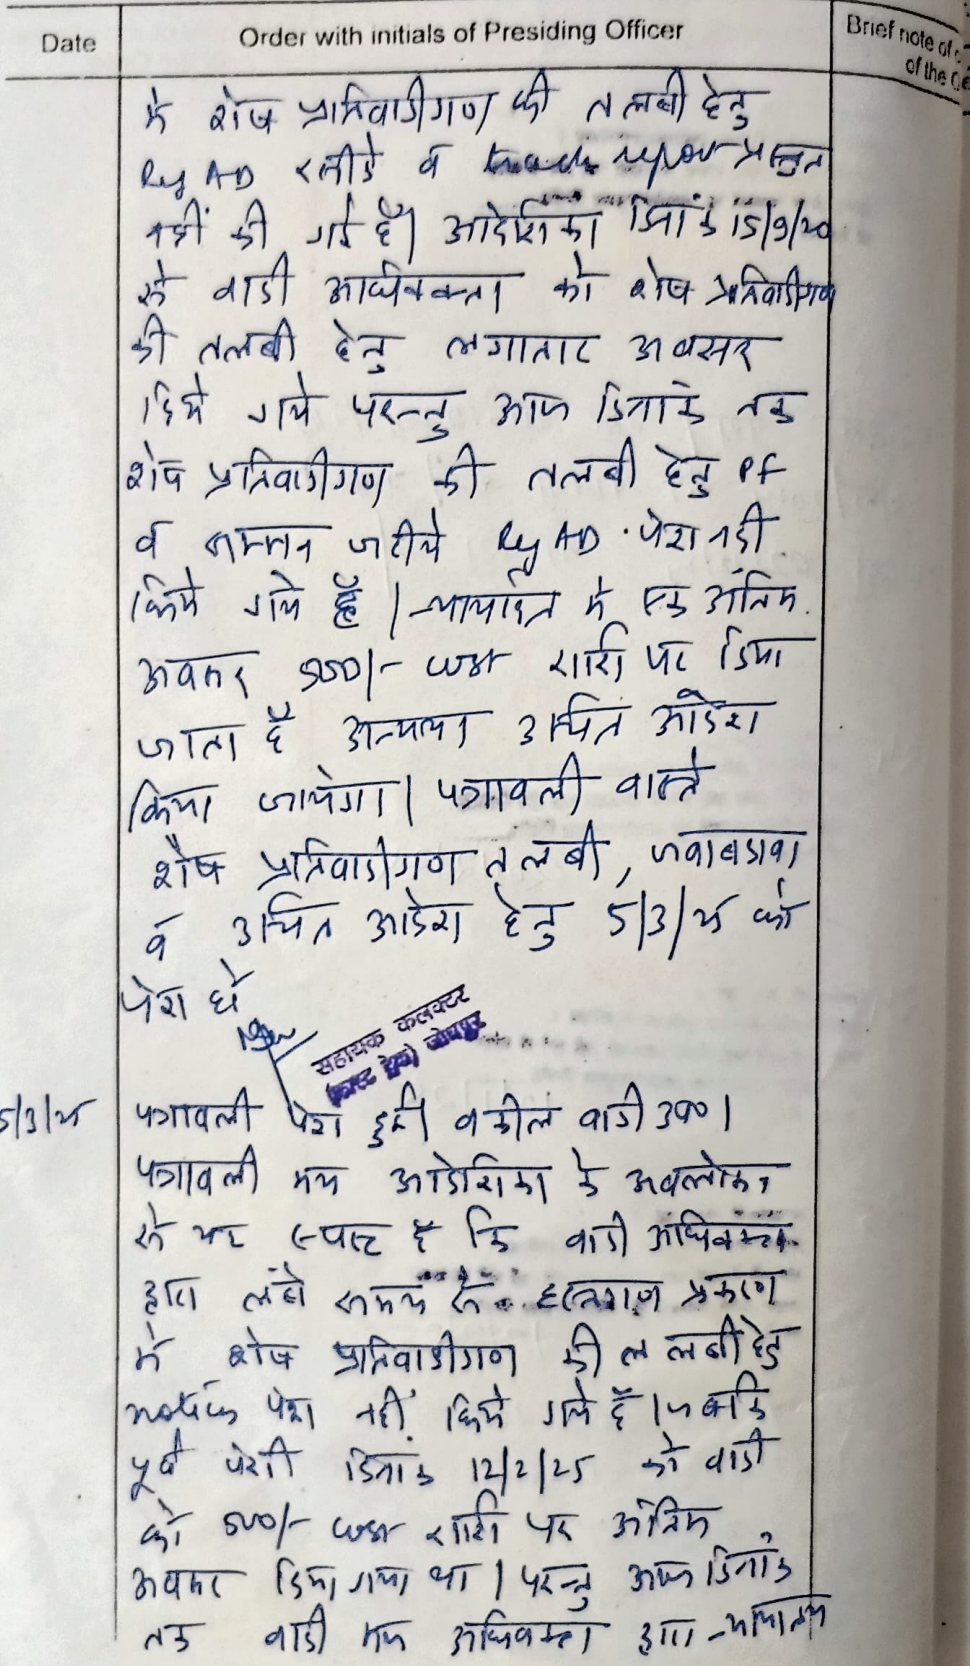 Date
Order with initials of Presiding Officer
Brief note of
of the
में शेष प्रतिवादीगण की तलबी हेतु
Reg AD रसीदें व track report प्रस्तुत
नहीं की गई है। आदेशिका दिनांक 15/9/20
से वादी अधिवक्ता को शेष प्रतिवादीगण
की तलबी हेतु लगातार अवसर
दिये गये परन्तु आज दिनांक तक
शेष प्रतिवादीगण की तलबी हेतु PF
व सम्मन जरीये Reg AD पेश नहीं
किये गये हैं। न्यायहित में एक अंतिम
अवसर 500/- cost राशि पर दिया
जाता है अन्यथा उचित आदेश
किया जायेगा। पत्रावली वास्ते
शेष प्रतिवादीगण तलबी, जवाबदावा
व उचित आदेश हेतु 5/3/25 को
पेश हो
सहायक कलक्टर
(फास्ट ट्रेक) जोधपुर
5/3/25
पत्रावली पेश हुई। वकील वादी उप०।
पत्रावली मय आदेशिका के अवलोकन
से यह स्पष्ट है कि वादी अधिवक्ता
द्वारा लंबे समय से हस्तगत प्रकरण
में शेष प्रतिवादीगण की तलबी हेतु
notice पेश नहीं किये गये हैं। जबकि
पूर्व पेशी दिनांक 12/2/25 को वादी
को 500/- cost राशि पर अंतिम
अवसर दिया गया था। परन्तु आज दिनांक
तक वादी मय अधिवक्ता द्वारा न्यायालय